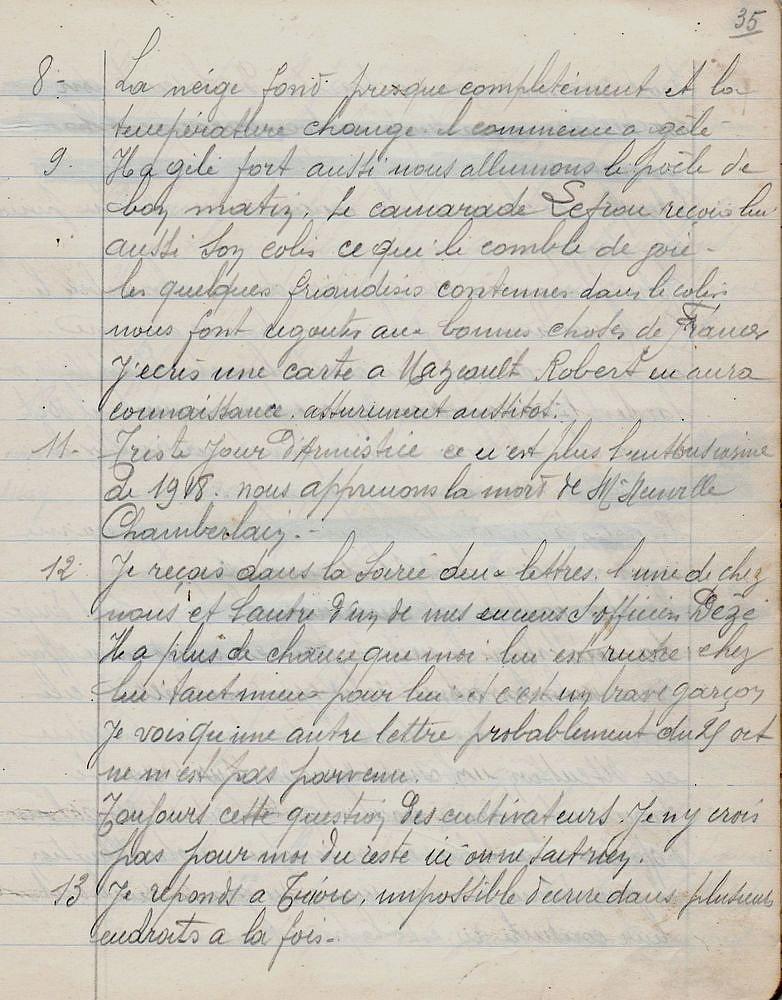 35
8- La neige fond presque complètement et la
température change. il commence a gêlé
9. Il a gêlé fort aussi nous allumons le poêle de
bon matin. Le camarade Lefrou reçois lui
aussi son colis ce qui le comble de joie -
les quelques friandises contenues dans le colis
nous font regouter aux bonnes choses de France
J'ecris une carte a Robert en aura
connaissance. assurement aussitot.
11- Triste jour d'Armistice ce n'est plus l'entousiasme
de 1918. nous apprenons la mort de Mr Neuville
Chamberlain. -
12 Je reçois dans la soirée deux lettres. l'une de chez
nous et l'autre d'un de mes anciens s/officiers Dézé
Il a plus de chance que moi. lui est rentré chez
lui. tant mieux pour lui et c'est un brave garçon
Je vois qu'une autre lettre probablement du 25 oct
ne m'est pas parvenu.
Toujours cette question des cultivateurs. Je n'y crois
pas pour moi du reste ici on ne sait rien.
13 Je reponds a impossible d'ecrire dans plusieurs
endroits a la fois -